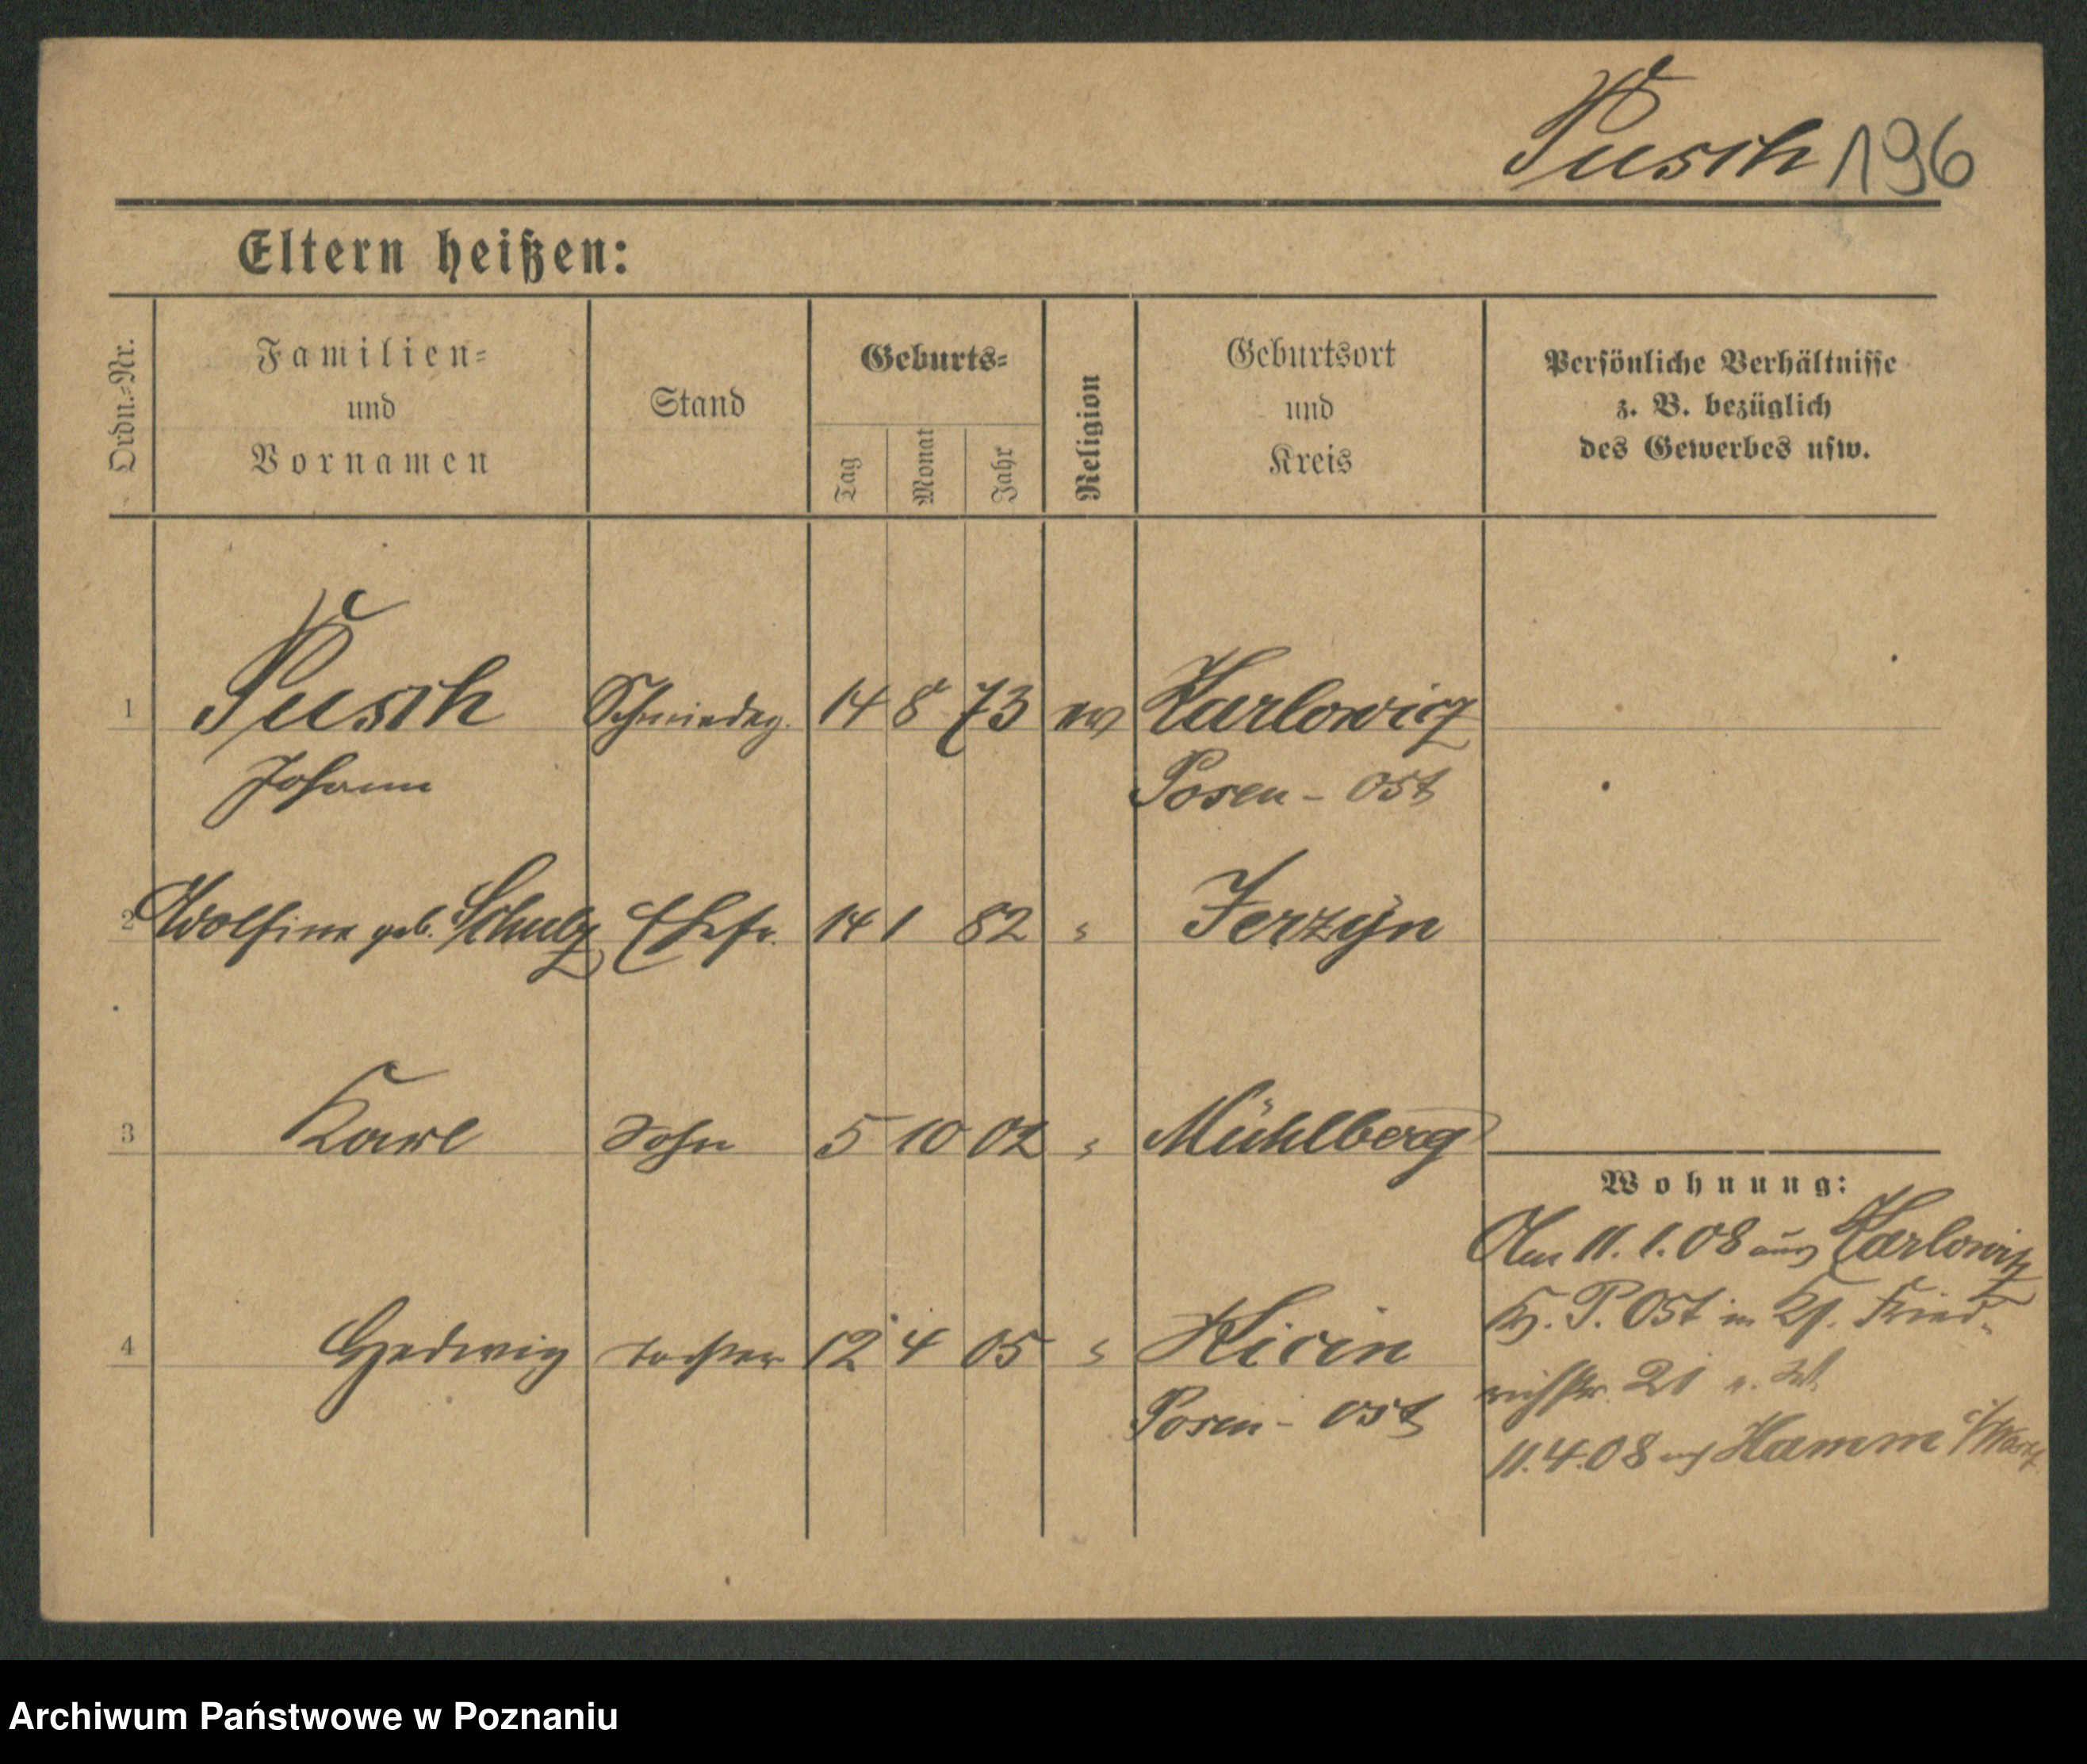 Pusch 196
Eltern heißen:
Ordn.=Nr.
Familien=
und
Vornamen
Stand
Geburts=
Tag
Monat
Jahr
Religion
Geburtsort
und
Kreis
Persönliche Verhältnisse
z. B. bezüglich
des Gewerbes usw.
1 Pusch Schmiedeg. 14 8 73 ev Karlowitz
Johann Posen - Ost
2 Adolfine geb. Schulz Ehefr. 14 1 82 " Jerzyn
3 Karl Sohn 5 10 02 " Mühlberg
Wohnung:
Am 11.1.08 aus Karlowitz
Kr. P. Ost in Fried-
richstr. 21
4 Hedwig Tochter 12 4 05 " Kicin
Posen - Ost
11.4.08 Hamm i/Westf.
Archiwum Państwowe w Poznaniu